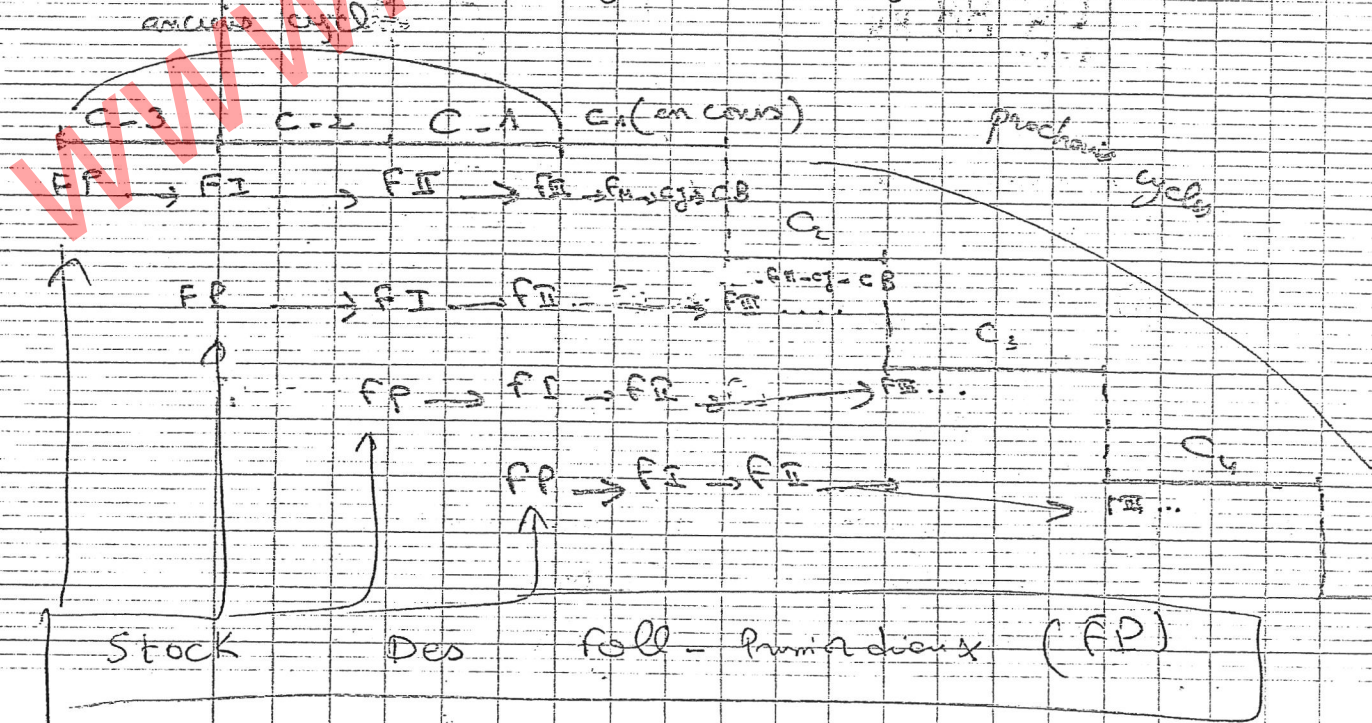 anciens cycles
C-3 C-2 C-1 C1 (en cours)
prochains
cycles
FP → FI → FII → FIII → FM → CJ → CB
C2
FP → FI → FII → FIII ....
- FM - CJ - CB
C3
FP → FI → FII → FIII ...
C4
FP → FI → FII → FIII ...
Stock Des foll- Primordiaux (FP)
WWW.